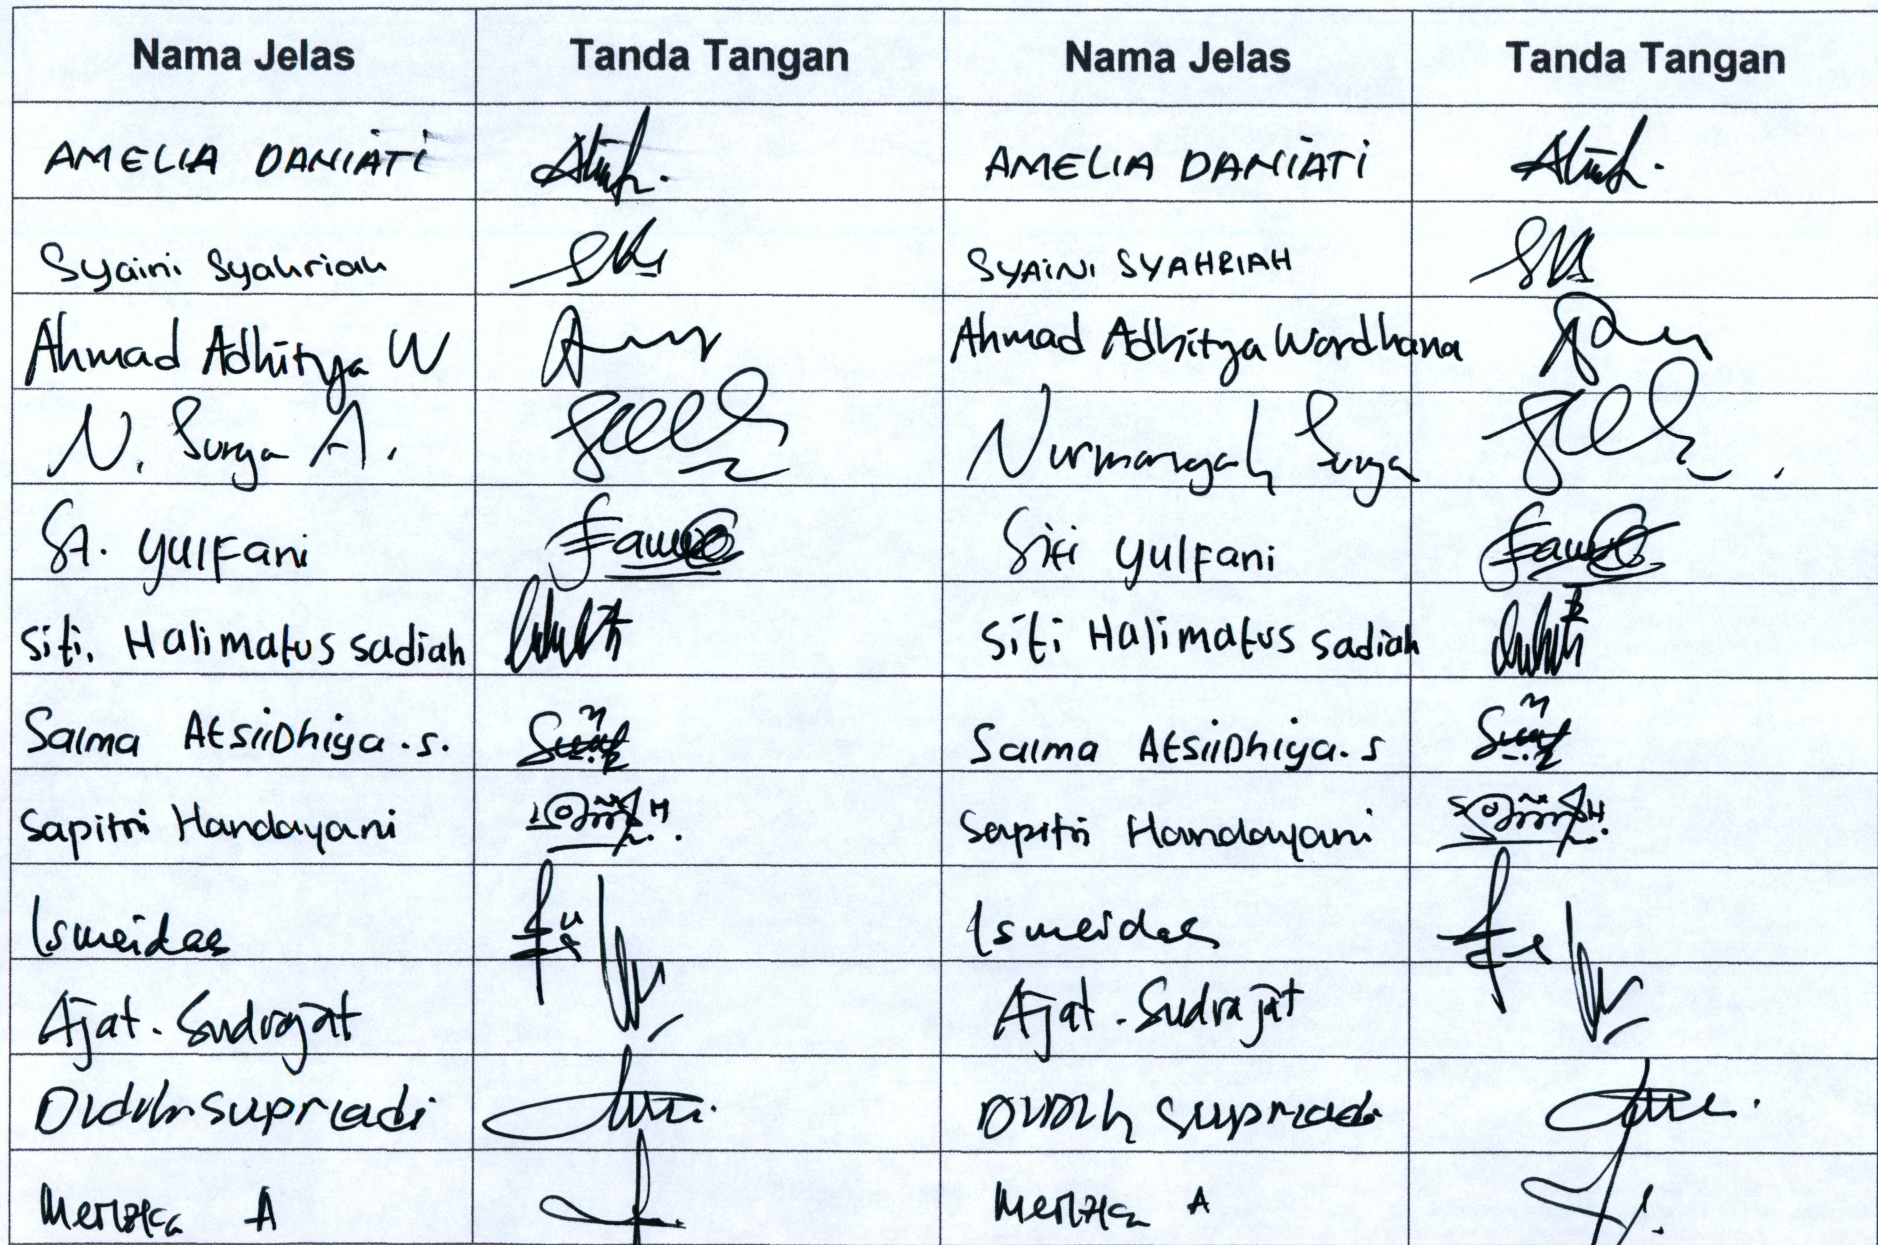 Nama Jelas Tanda Tangan Nama Jelas Tanda Tangan
AMELIA DANIATI AMELIA DANIATI
Syaini Syahriah SYAINI SYAHRIAH
Ahmad Adhitya W Ahmad Adhitya Wardhana
N. Surya A. Nurmansyah Surya
St. Yulfani Siti Yulfani
Siti. Halimatus sadiah Siti Halimatus sadiah
Salma AtsiiDhiya.s. Salma AtsiiDhiya.s
Sapitri Handayani Sapitri Handayani
Ismeidas Ismeidas
Ajat. Sudrajat Ajat. Sudrajat
Diduh Supriadi DIDUH Supriadi
A A